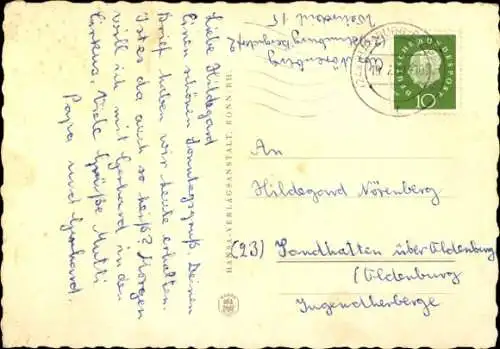 Liebe Hildegard
Einen schönen Sonntagsgruß. Deinen
Brief haben wir heute erhalten.
Ist es da auch so heiß? Morgen
will ich mit Gerhard in den
Cirkus. Viele Grüße Mutti
Papa und Gerhard.
Nörenberg
HANSA-VERLAGSANSTALT, BONN RH.
DEUTSCHE BUNDESPOST
10
An
Hildegard Nörenberg
(23) Sandhatten über Oldenburg
(Oldenburg
Jugendherberge